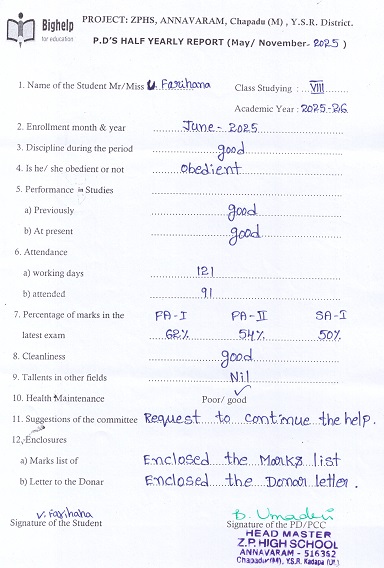 Bighelp
for education
PROJECT: ZPHS, ANNAVARAM, Chapadu (M) , Y.S.R. District.
P.D'S HALF YEARLY REPORT (May/ November- 2025 )
1. Name of the Student Mr/Miss U. Farihana Class Studying : VIII
Academic Year : 2025-26
2. Enrollment month & year June - 2025
3. Discipline during the period good
4. Is he/ she obedient or not obedient
5. Performance in Studies
a) Previously good
b) At present good
6. Attendance
a) working days 121
b) attended 91
7. Percentage of marks in the FA-I FA-II SA-I
latest exam 62% 54% 50%
8. Cleanliness good
9. Tallents in other fields Nil
10. Health Maintenance Poor/ good ✓
11. Suggestions of the committee Request to continue the help.
12. Enclosures
a) Marks list of Enclosed the Marks list
b) Letter to the Donar Enclosed the Donar letter.
V. Farihana
Signature of the Student
B. Umadevi
Signature of the PD/PCC
HEAD MASTER
Z.P. HIGH SCHOOL
ANNAVARAM - 516362
Chapadu (M), Y.S.R. Kadapa (Dt.)